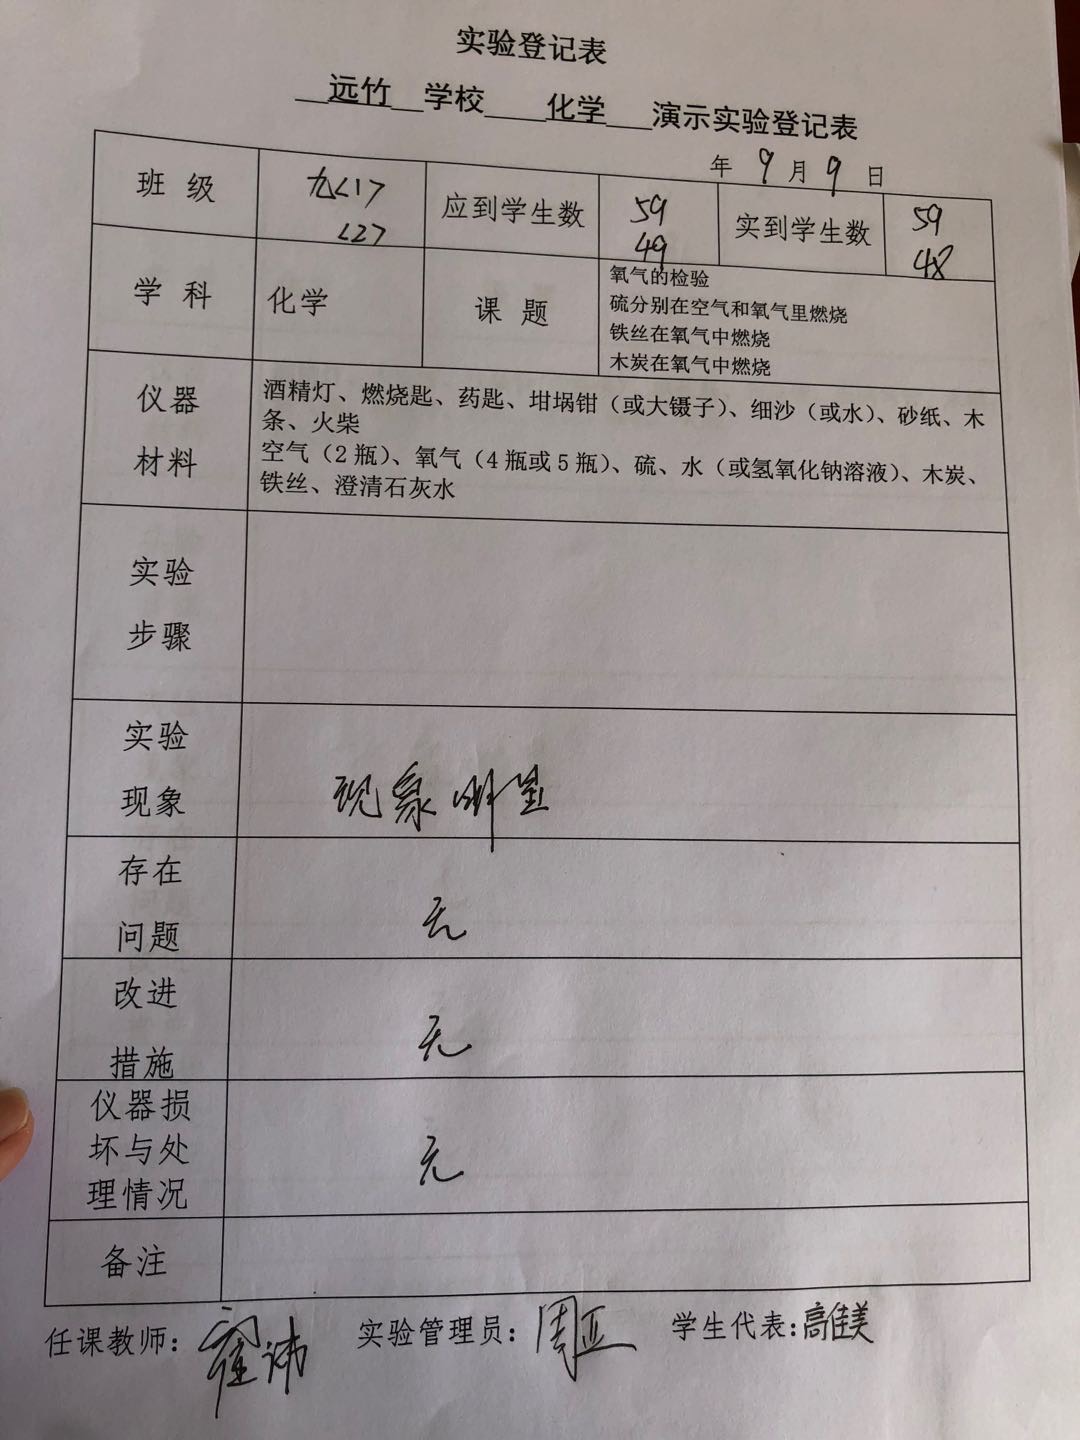 实验登记表
远竹 学校 化学 演示实验登记表
年 9 月 9 日
班 级 九<1> 应到学生数 59 实到学生数 59
<2> 49 48
学 科 化学 课 题 氧气的检验
硫分别在空气和氧气里燃烧
铁丝在氧气中燃烧
木炭在氧气中燃烧
仪器
材料
酒精灯、燃烧匙、药匙、坩埚钳（或大镊子）、细沙（或水）、砂纸、木
条、火柴
空气（2 瓶）、氧气（4 瓶或 5 瓶）、硫、水（或氢氧化钠溶液）、木炭、
铁丝、澄清石灰水
实验
步骤
实验
现象
现象明显
存在
问题
无
改进
措施
无
仪器损
坏与处
理情况
无
备注
任课教师： 实验管理员：周亚 学生代表：高佳美